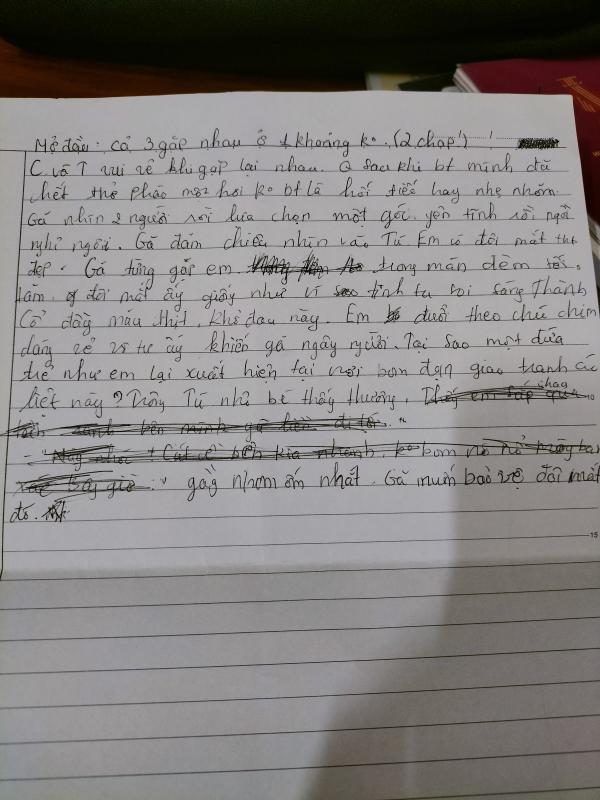 Mở đầu: cả 3 gặp nhau ở 1 khoảng ko. (2 chap!)
C và T vui vẻ khi gặp lại nhau. Q sau khi bt mình đã
chết thở phào một hơi ko bt là hối tiếc hay nhẹ nhõm.
Gã nhìn 2 người rồi lựa chọn một góc yên tĩnh rồi ngồi
nghỉ ngơi. Gã đăm chiêu nhìn vào Tú. Em có đôi mắt thật
đẹp. Gã từng gặp em trong màn đêm tối
tăm, đôi mắt ấy giống như vì tinh tú soi sáng Thành
Cổ đầy máu thịt, khổ đau này. Em đuổi theo chú chim
dáng vẻ vô tư ấy khiến gã ngây người. Tại sao một đứa
trẻ như em lại xuất hiện tại nơi bom đạn giao tranh ác
liệt này? Trông Tú nhỏ bé thấy thương.
gầy nhom ốm nhất. Gã muốn bảo vệ đôi mắt
đó.
10
15